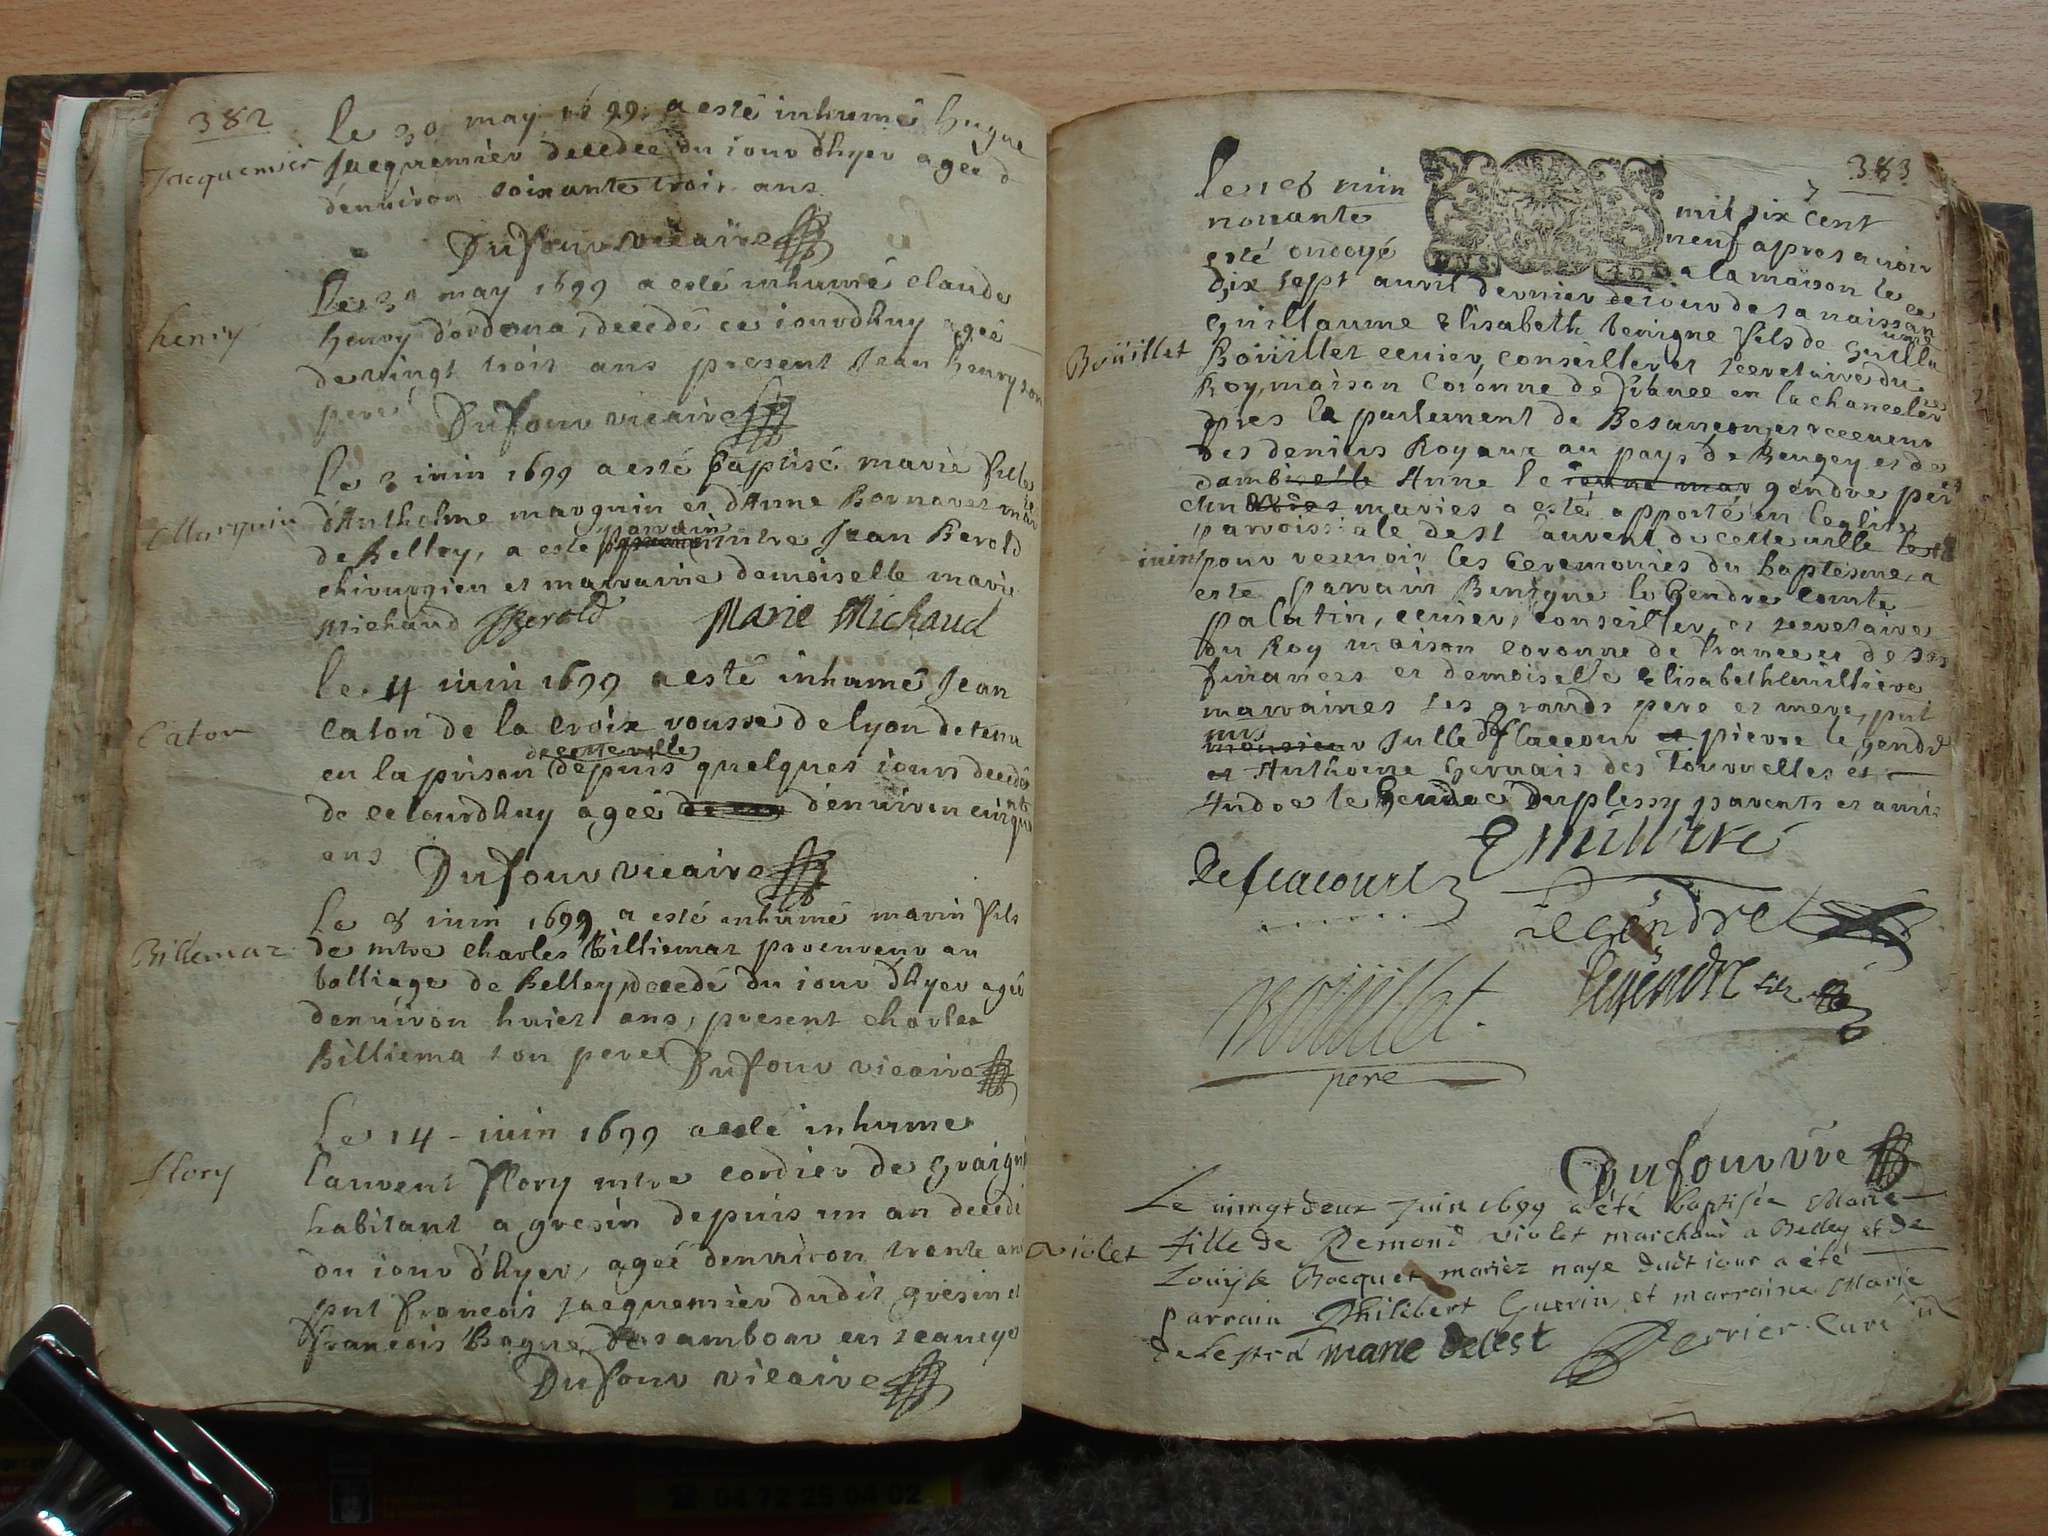 382
Jacquemier
le 30 may 1699 a esté inhumé hugue
Jacquemier decedee du iour dhyer agée
denuiron soixante trois ans
Dufour vicaire
henry
Le 31 may 1699 a esté inhumé claude
henry dordona, decedé ce iourdhuy ageé
de vingt trois ans present Jean henry son
pere Dufour vicaire
Marquin
Le 3 iuin 1699 a esté baptisé marie fille
d'Anthelme marquin et d'Anne Bornaret
de Belley, a esté parrain mtre Jean Berold
chirurgien et marraine demoiselle marie
michaud JBerold Marie Michaud
Caton
le 4 iuin 1699 a esté inhumé Jean
Caton de la Croix rousse de lyon detenu
en la prison de cette ville depuis quelques iours decedé
de ce iourdhuy ageé denuiron cinquante
ans Dufour vicaire
Billiemaz
Le 8 iuin 1699 a esté inhumé marin fils
de mtre charles Billiemaz procureur au
balliage de Belley, decedé du iour dhyer ageé
denuiron huict ans, present charles
Billiema son pere Dufour vicaire
flory
Le 14 - iuin 1699 a esté inhume
laurent flory mtre cordier de
habitant a gresin depuis un an decedé
du iour dhyer, ageé denuiron trente ans
pnt francois Jacquemier dudit gresin et
francois Bogue de sambour en
Dufour vicaire
383
le 18 iuin mil six cent
nonante neuf apres auoir
esté ondoyé a la maison le
dix sept auril dernier de iour de sa naissance
guillaume Elisabeth benigne fils de guillaume
Boüillet
Boüillet ecuier, conseiller et secretaire du
Roy, maison Coronne de france en la chancelerie
pres le parlement de Besançon, et receueur
des deniers Royaux au pays de Beugey et de
dambiselle Anne le gendre pere
maries a esté apporté en leglise
parroissiale de st laurent de cette uille
iuin pour receuoir les Ceremonies du baptesme, a
este parrain Benigne le Gendre Comte
palatin, ecuier, conseiller et secretaire
du Roy maison coronne de france et de ses
finances et demoiselle Elisabeth
marraines ses grands pere et mere, pnt
mrs Julle de flacour pierre le gendre
et Anthoine Geruais des Tournelles et
Andoe le Gendre Duplessy parents et amis
Deflacourt
Legendre
Boüillet
pere
Legendre
Dufour vire
Le uingt deux Juin 1699 a été baptisée Marie
violet
fille de Remond violet marchand a Belley et de
Louijse Bocquet mariez naye dudt iour a été
parrain Philibert Guerin, et marraine Marie
marie delest Perrier Curé